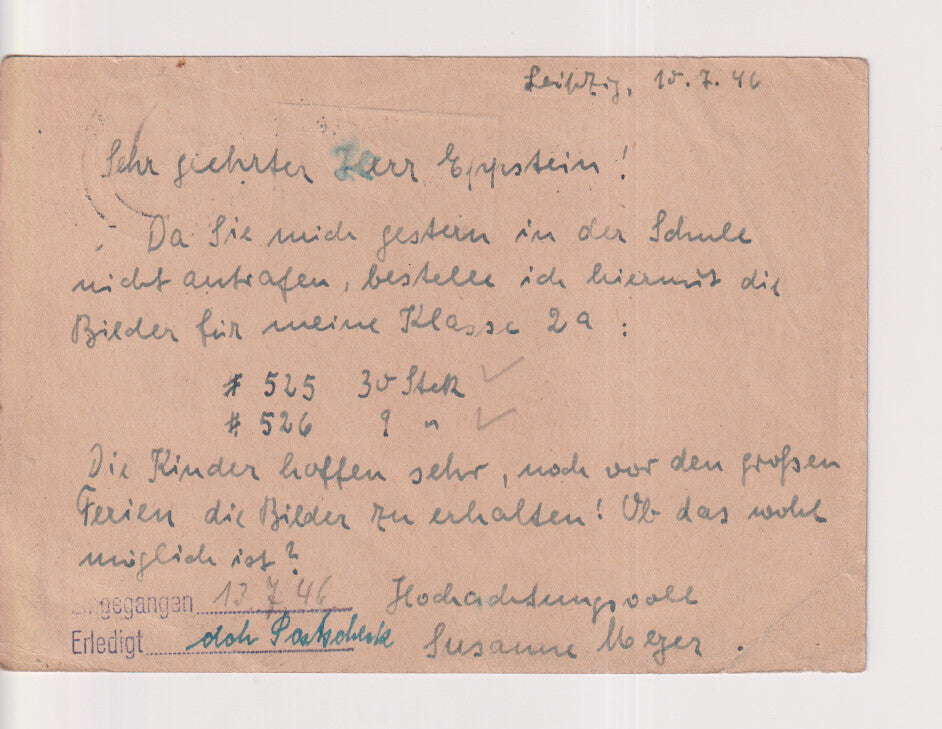 Leipzig, 10.7.46
Sehr geehrter Herr Eppstein!
Da Sie mich gestern in der Schule
nicht antrafen, bestelle ich hiermit die
Bilder für meine Klasse 2a:
# 525 30 Stck
# 526 9 "
Die Kinder hoffen sehr, noch vor den großen
Ferien die Bilder zu erhalten! Ob das wohl
möglich ist?
Hochachtungsvoll
Susanne Meyer.
Eingegangen 13.7.46
Erledigt Postscheck